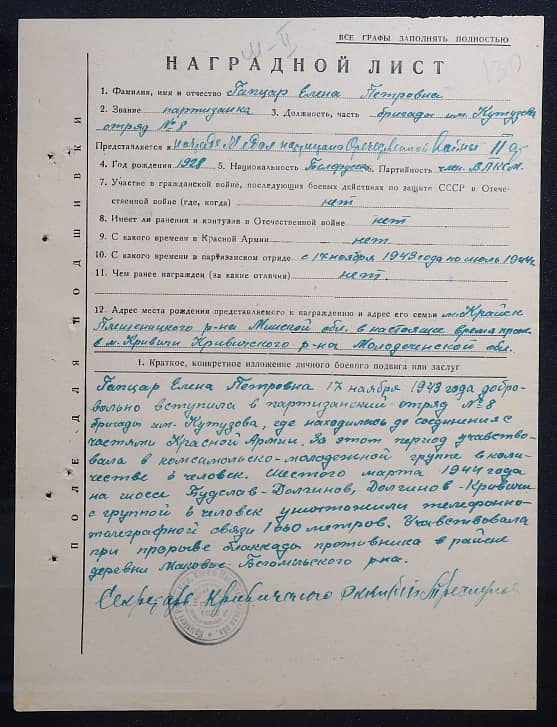 ВСЕ ГРАФЫ ЗАПОЛНЯТЬ ПОЛНОСТЬЮ
НАГРАДНОЙ ЛИСТ
1. Фамилия, имя и отчество Гапцар Елена Петровна
2. Звание партизанка 3. Должность, часть бригады им. Кутузова
отряд №8
Представляется к Отечественной Войны II
4. Год рождения 1928 5. Национальность 6. Партийность член ВЛКСМ
7. Участие в гражданской войне, последующих боевых действиях по защите СССР и Отече-
ственной войне (где, когда) нет
8. Имеет ли ранения и контузии в Отечественной войне нет
9. С какого времени в Красной Армии нет
10. С какого времени в партизанском отряде с 17 ноября 1943 года по июль 1944
11. Чем ранее награжден (за какие отличия) нет.
12. Адрес места рождения представляемого к награждению и адрес его семьи м. Крайск
Плещеницкого р-на Минской обл. в настоящее время прож.
в м. Кривичи Кривичского р-на Молодеченской обл.
1. Краткое, конкретное изложение личного боевого подвига или заслуг
Гапцар Елена Петровна 17 ноября 1943 года добро-
вольно вступила в партизанский отряд №8
бригады им. Кутузова, где находилась до соединения с
частями Красной Армии. За этот период участво-
вала в комсомольско-молодежной группе в коли-
честве 6 человек. Шестого марта 1944 года
на шоссе Будслав-Долгинов, Долгинов-Кривичи
с группой 6 человек уничтожили телефонно-
телеграфной связи метров. Участвовала
при прорыве блокады противника в районе
деревни Маковье Бегомльского р-на.
Секретарь Кривичского
ПОЛЕ ДЛЯ ПОДШИВКИ